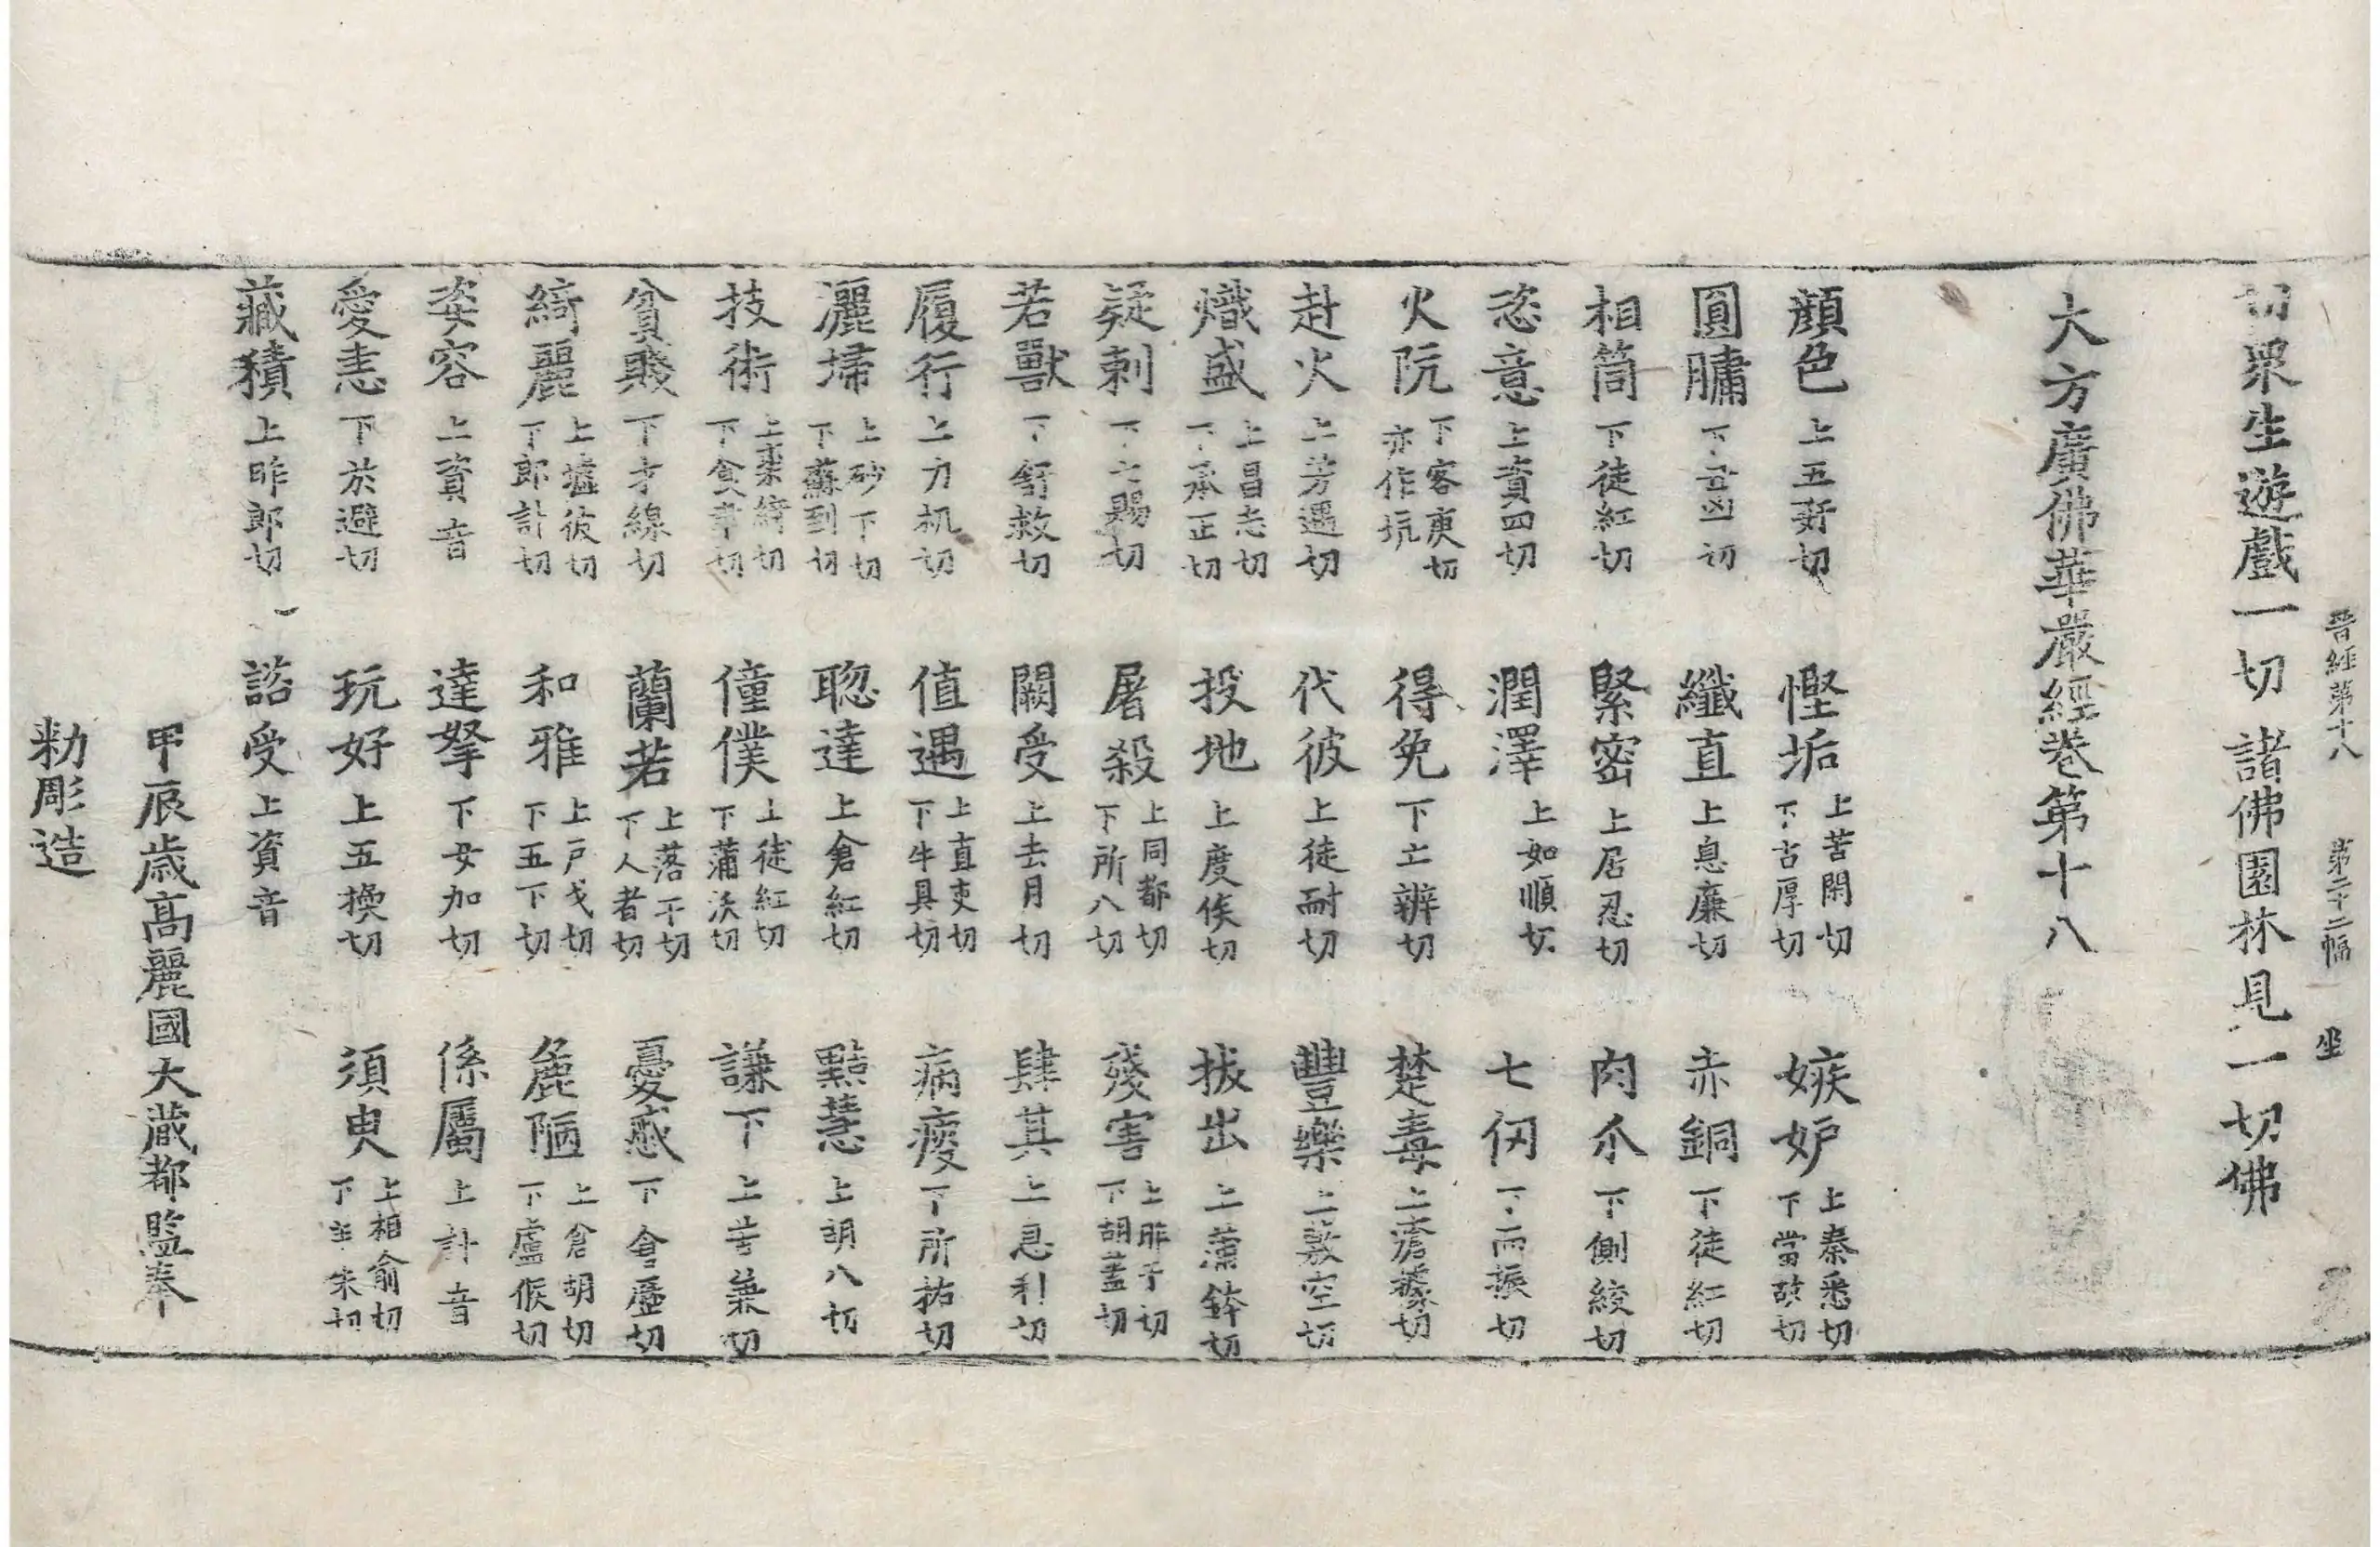 晋經第十八 第二十二幅 坐
切眾生遊戲一切諸佛園林見一切佛
大方廣佛華嚴經卷第十八
顔色上五姧切 慳垢上苦閑切下古厚切 嫉妒上秦悉切下當故切
圓𦟛下丑凶切 纖直上息廉切 赤銅下徒紅切
相筒下徒紅切 緊密上居忍切 肉爪下側絞切
恣意上資四切 潤澤上如順切 七仞下而振切
火阬下客庚切亦作坑 得免下亡辨切 楚毒上瘡舉切
赴火上芳遇切 代彼上徒耐切 豐樂上敷空切
熾盛上昌志切下承正切 投地上度侯切 拔出上蒲鉢切
疑刺下七賜切 屠殺上同都切下所八切 殘害上昨干切下胡蓋切
若獸下舒救切 闕受上去月切 肆其上息利切
履行上力机切 值遇上直吏切下牛具切 病瘦下所祐切
灑掃上砂下切下蘇到切 聦達上倉紅切 黠慧上胡八切
技術上渠綺切下食聿切 僮僕上徒紅切下蒲沃切 謙下上苦兼切
貧賤下才線切 蘭若上落干切下人者切 憂慼下倉歷切
綺麗上墟彼切下郎計切 和雅上戶戈切下五下切 麁陋上倉胡切下盧候切
姿容上資音 達拏下女加切 係屬上計音
愛恚下於避切 玩好上五換切 須臾上相俞切下羊朱切
藏積上昨郎切 諮受上資音
甲辰歲高麗國大藏都監奉
勑彫造